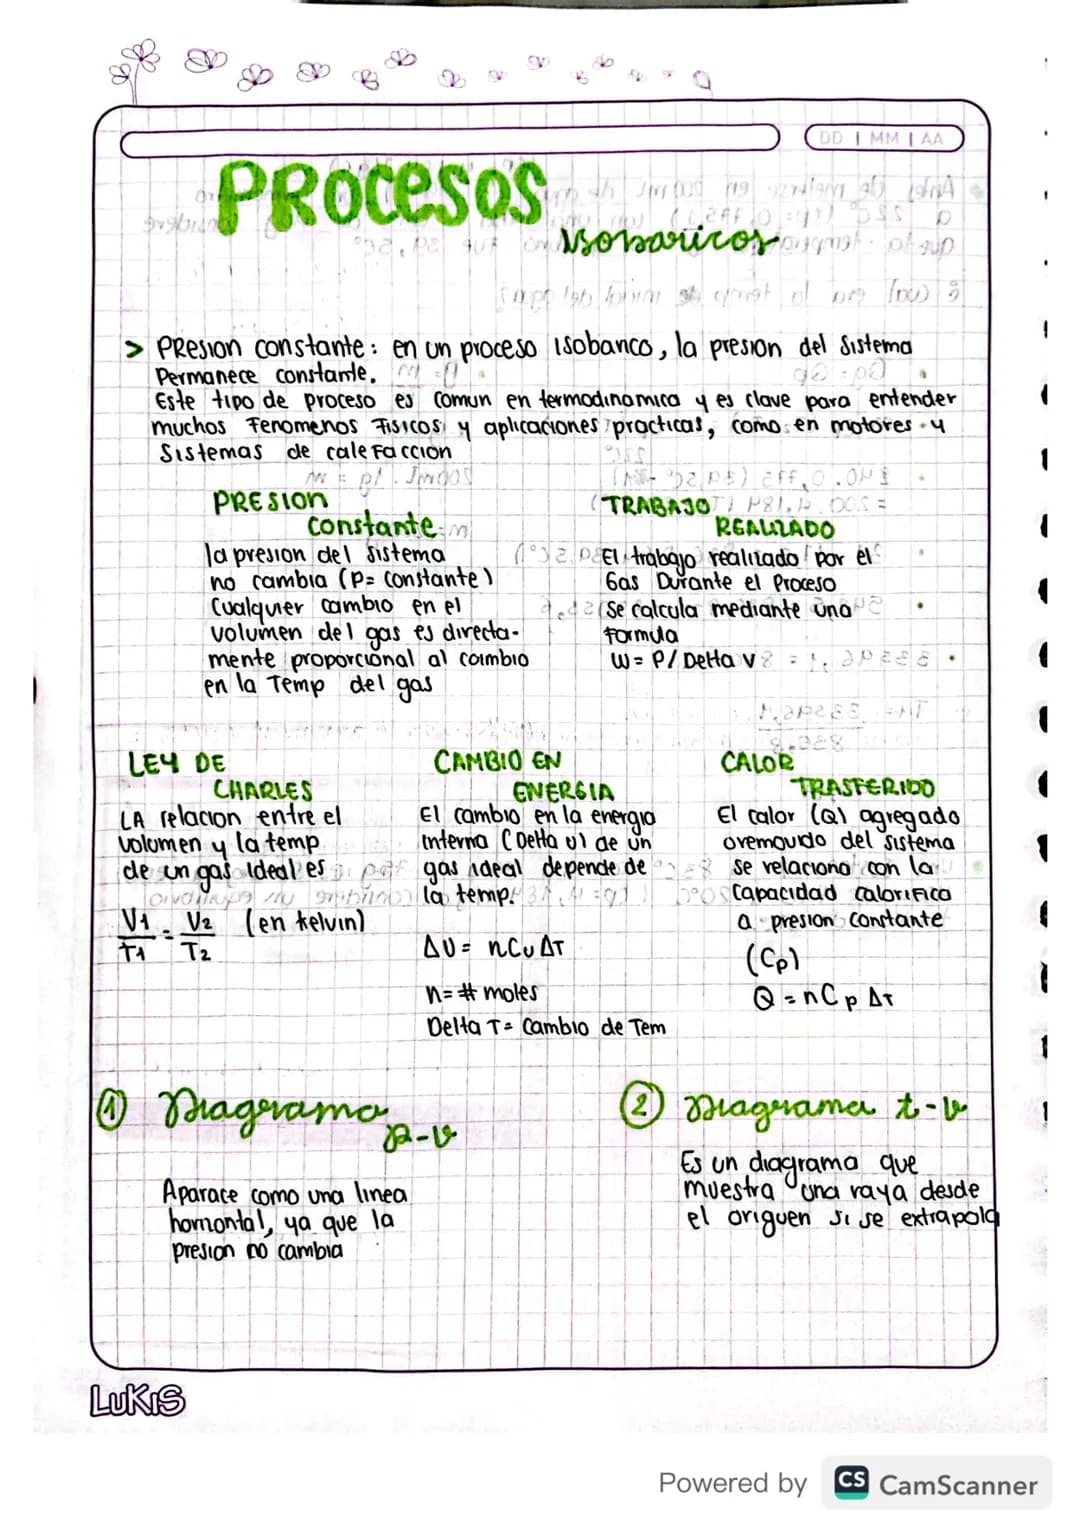 DD | MM | AA
PROCESOS
Isobaricos
> PResion constante: en un proceso isobarico, la presion del sistema
Permanece constante.
Este tipo de proceso es comun en termodinamica y es clave para entender
muchos Fenomenos Fisicos y aplicaciones practicas, como en motores y
Sistemas de caleFaccion
PRESION
constante
la presion del sistema
no cambia (P= constante)
Cualquier cambio en el
volumen del gas es directa-
mente proporcional al cambio
en la Temp del gas
TRABAJO
REALIZADO
El trabajo realizado por el
Gas Durante el Proceso
Se calcula mediante una
formula
W= P/ Delta v
LEY DE
CHARLES
LA relacion entre el
volumen y la temp
de un gas ideal es
V1 = V2 (en kelvin)
T1 T2
CAMBIO EN
ENERGIA
El cambio en la energia
Interna (Delta U) de un
gas ideal depende de
la temp.
ΔU = nCvΔT
n= # moles
Delta T= Cambio de Tem
CALOR
TRASFERIDO
El calor (Q) agregado
o removido del sistema
se relaciona con la
Capacidad calorifica
a presion constante
(Cp)
Q = nCp ΔT
① Diagrama
p-v
Aparace como una linea
horizontal, ya que la
presion no cambia
② Diagrama t-v
Es un diagrama que
muestra una raya desde
el origuen si se extrapola
LUKIS
Powered by CS CamScanner